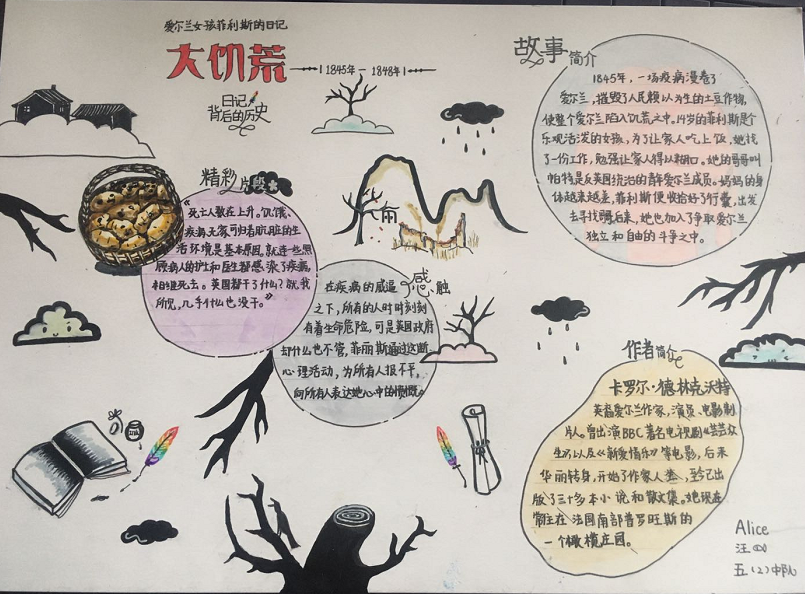 爱尔兰女孩菲利斯的日记
大饥荒
1845年 — 1848年
日记
背后的历史
故事简介
1845年，一场疫病漫卷了
爱尔兰，摧毁了人民赖以为生的土豆作物，
使整个爱尔兰陷入饥荒之中。14岁的菲利斯是个
乐观活泼的女孩，为了让家人吃上饭，她找
了一份工作，勉强让家人得以糊口。她的哥哥叫
帕特是反英国统治的青年爱尔兰成员。妈妈的身
体越来越差，菲利斯便收拾好了行囊，出发
去寻找哥哥。后来，她也加入了争取爱尔兰
独立和自由的斗争之中。
精彩片段
“死亡人数在上升。饥饿、
疾病、无家可归者肮脏的生
活环境是基本原因。就连一些照
顾病人的护士和医生都感染了疾病，
相继死去。英国都干了什么？就我
所见，几乎什么也没干。”
感触
在疾病的威逼
之下，所有的人时时刻刻
有着生命危险，可是英国政府
却什么也不管，菲丽斯通过这断
心理活动，为所有人报不平，
向所有人表达她心中的愤慨。
作者简介
卡罗尔·德林克沃特
英籍爱尔兰作家，演员、电影制
片人。曾出演BBC著名电视剧《芸芸众
生》以及《新爱情乐》等电影，后来
华丽转身，开始了作家人类，至今已出
版了三十多本小说和散文集。她现在
常住在法国南部普罗旺斯的
一个橄榄庄园。
Alice
汪
五(2)中队